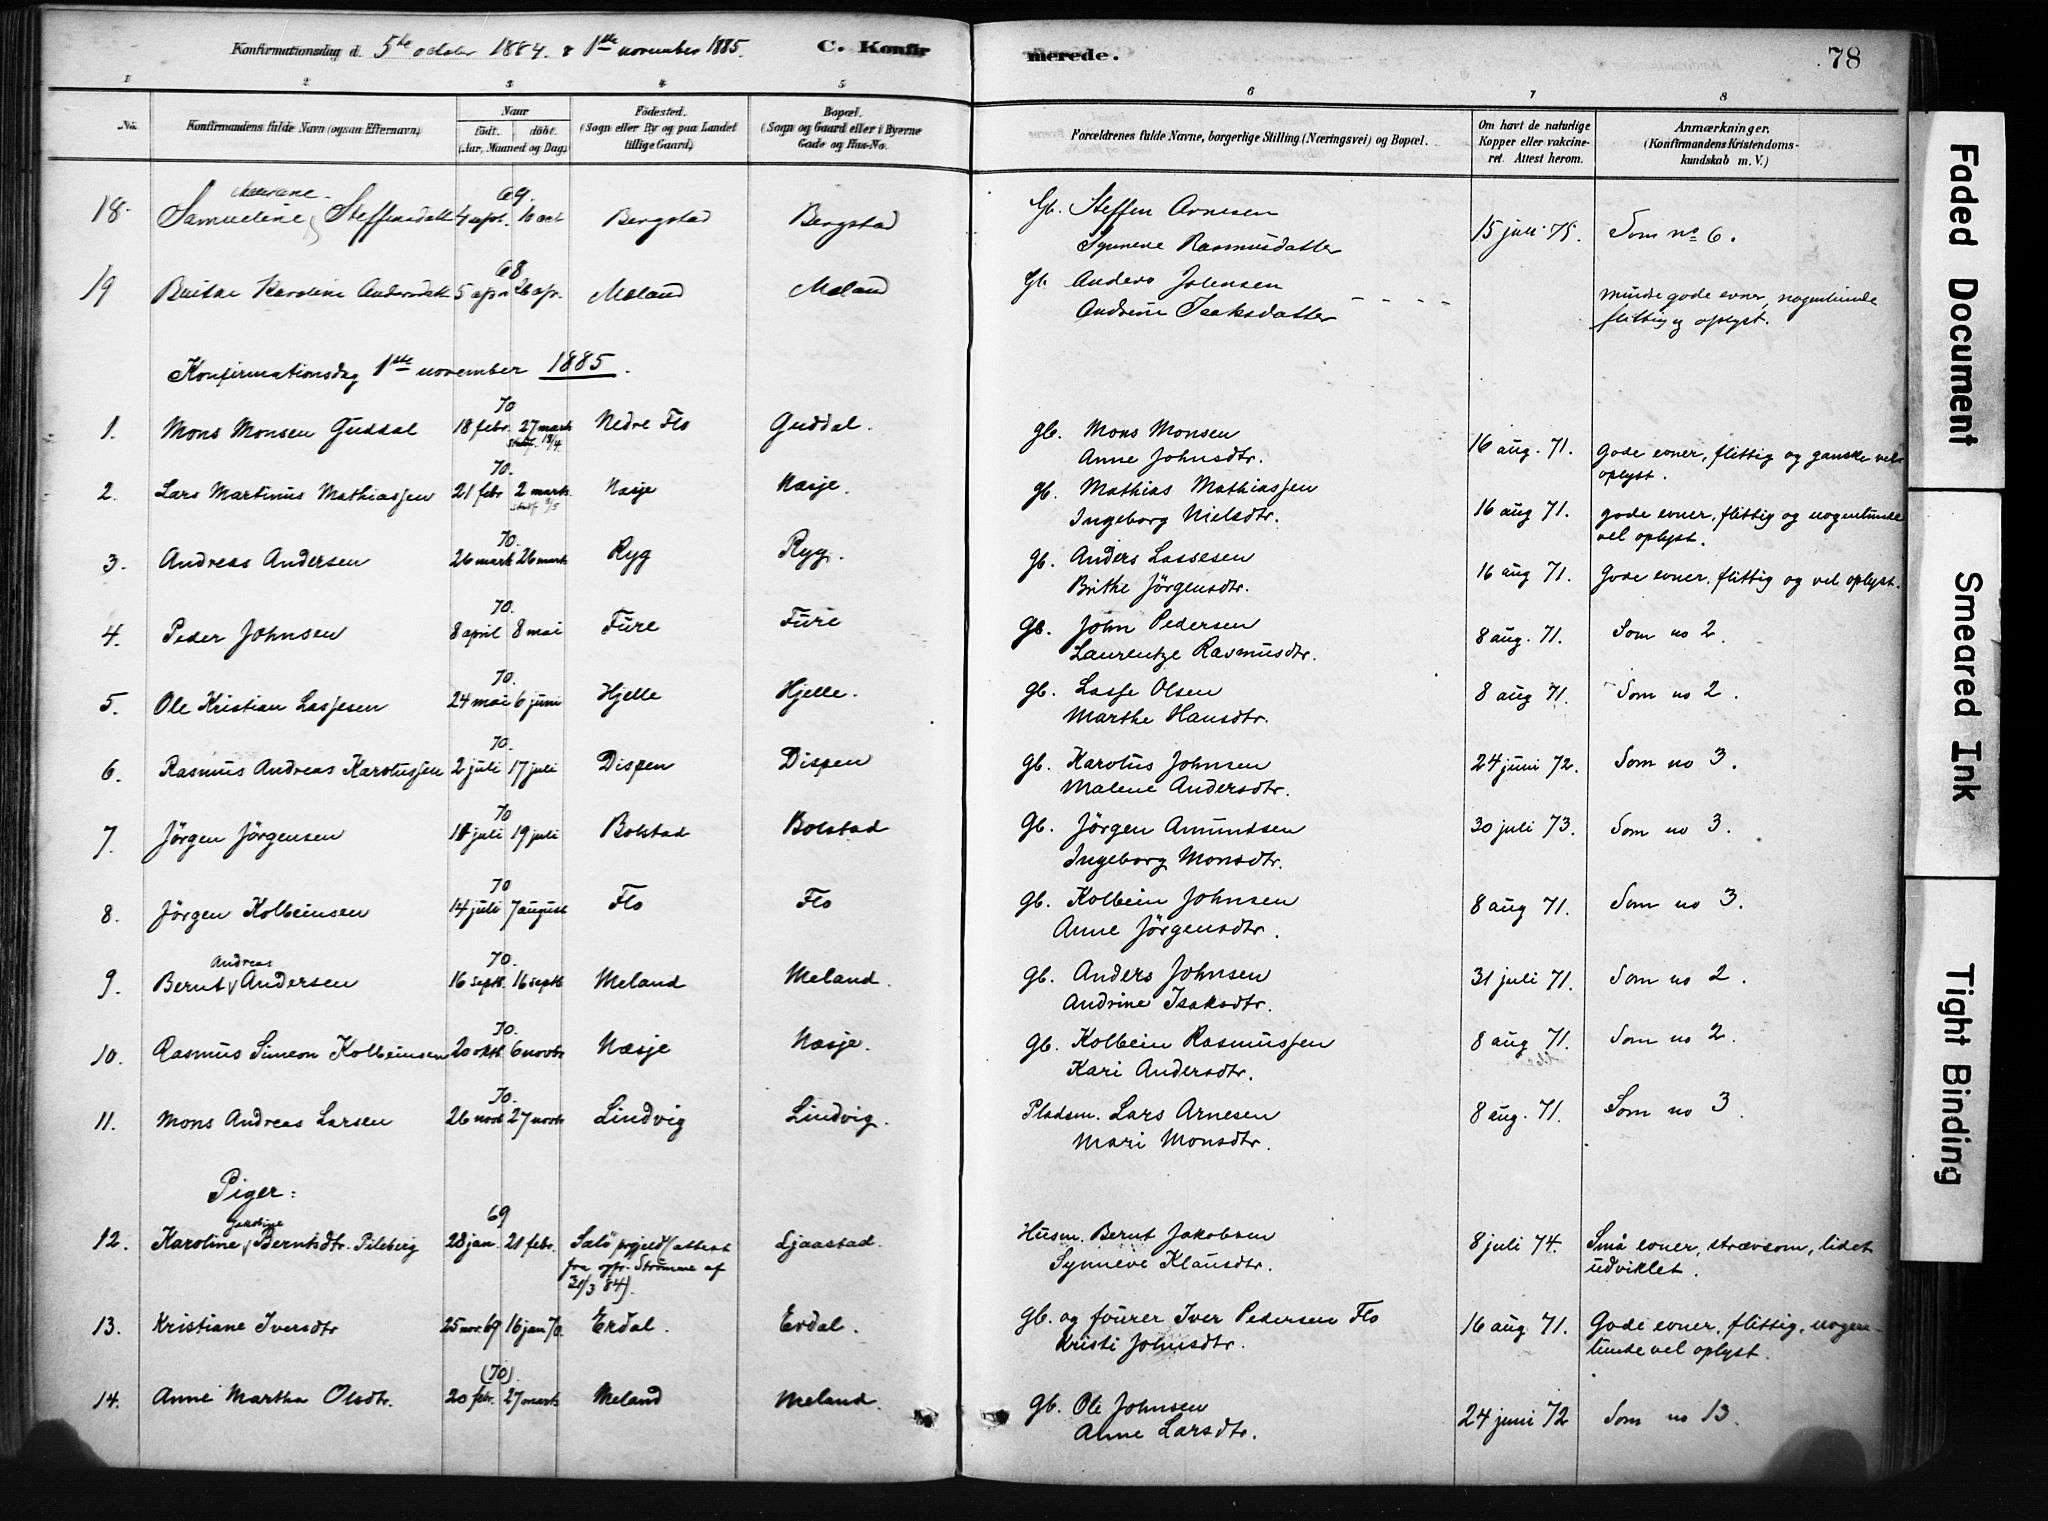 Konfirmationsdag d. 5te october 1884. & 1ste november 1885. C. Konfir merede. 78
1 2 3 4 5 6 7 8
No. Konfirmandens fulde Navn (ogsaa Efternavn) Naar födt. döbt. (Aar, Maaned og Dag) Födested. (Sogn eller By og paa Landet tillige Gaard) Bopæl. (Sogn og Gaard eller i Byerne Gade og Hus-No. Forældrenes fulde Navne, borgerlige Stilling (Næringsvei) og Bopæl. Om havt de naturlige Kopper eller vakcineret. Attest herom. Anmærkninger. (Konfirmandens Kristendomskundskab m. V.)
69.
18. Samueline Steffensdatt 4 sept. 10 oct Bergstad Bergstad Gb. Steffen Arnesen 15 juli 75. Som no 6.
Synneve Rasmusdatter
68
19 Brithe Karoline Andersdatt 5 apr 26 apr. Meland Meland Gb. Anders Johnsen Mindre gode evner, nogenlunde
Andrine Isaksdatter - - - - flittig og oplyst.
Konfirmationsdag 1ste november 1885.
70
1. Mons Monsen Guddal 18 febr. 27 marts Nedre Flo Guddal. gb. Mons Monsen 16 aug. 71. Gode evner, flittig og ganske vel
Anne Johnsdtr. oplyst.
70.
2. Lars Martinus Mathiassen 21 febr 2 marts Næsje Næsje. gb. Mathias Mathiassen 16 aug 71. gode evner, flittig og nogenlunde
Ingeborg Nielsdtr. vel oplyst.
70.
3. Andreas Andersen 26 mart 26 marts Ryg Ryg. gb. Anders Lassesen 16 aug 71. Gode evner, flittig og vel oplyst.
Brithe Jörgensdtr.
70.
4. Peder Johnsen 8 april 8 mai Fure Fure gb. John Pedersen 8 aug. 71. Som no 2.
Laurentze Rasmusdtr.
70.
5. Ole Kristian Lassesen 24 mai 6 juni Hjelle Hjelle. gb. Lasse Olsen 8 aug 71. Som no 2.
Marthe Hansdtr.
70.
6. Rasmus Andreas Karotussen 2 juli 17 juli Dispen Dispen gb. Karotus Johnsen 24 juni 72. Som no 3.
Malene Andersdtr.
70
7. Jörgen Jörgensen 11 juli 19 juli Bolstad Bolstad Gb. Jörgen Amundsen 30 juli 73. Som no 3.
Ingeborg Monsdtr.
70
8. Jörgen Kolbeinsen 14 juli 7 august Flo Flo gb. Kolbein Johnsen 8 aug 71. Som no 3.
Anne Jörgensdtr.
Andreas 70.
9. Bernt Andersen 16 septb. 16 septb Meland Meland. gb. Anders Johnsen 31 juli 71. Som no 2.
Andrine Isaksdtr.
70.
10. Rasmus Simeon Kolbeinsen 20 oktb 6 novbr Næsje Næsje. gb. Kolbein Rasmussen 8 aug 71. Som no 2.
Kari Andersdtr.
70.
11. Mons Andreas Larsen 26 novb 27 novb Lindvig Lindvig. Pladsm. Lars Arnesen 8 aug. 71. Som no 3.
Mari Monsdtr.
Piger:
Jakobine 69
12. Karoline Berntsdtr. Pileberg 28 jan. 21 febr. Selö prgjeld (attest Ljaastad. Husm. Bernt Jakobsen 8 juli 74. Små evner, strævsom, lidet
fra spr. Strömme af Synneve Klausdtr. udviklet.
31/3 84).
13. Kristiane Iversdtr 25 nov. 69 16 jan 70. Erdal. Erdal. gb. og fourer Iver Pedersen Flo 16 aug 71. Gode evner, flittig, nogen-
Kristi Johnsdtr. lunde vel oplyst.
(70).
14. Anne Martha Olsdtr. 20 febr. 27 marts Meland Meland. gb. Ole Johnsen 24 juni 72 Som no 13.
Anne Larsdtr.
Faded Document
Smeared Ink
Tight Binding